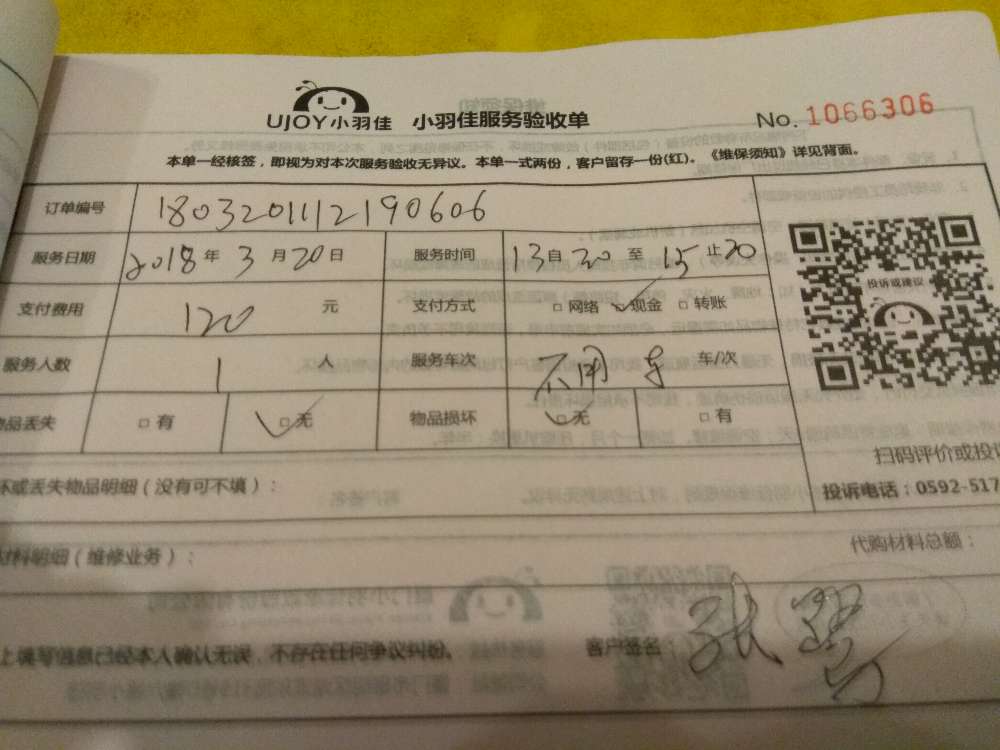 UJOY小羽佳 小羽佳服务验收单 No. 1066306
本单一经核签,即视为对本次服务验收无异议。本单一式两份,客户留存一份(红)。《维保须知》详见背面。
订单编号 1803201112190606
服务日期 2018 年 3 月 20 日 服务时间 13 自 20 至 15 止 20
支付费用 120 元 支付方式 □网络 ✓现金 □转账
投诉或建议
服务人数 1 人 服务车次 不用 车/次
物品丢失 □有 ✓□无 物品损坏 ✓□无 □有
扫码评价或投
坏或丢失物品明细(没有可不填):
投诉电话:0592-517
材料明细(维修业务): 代购材料总额:
上填写信息已经本人确认无误,不存在任何争议纠纷。 客户签名: 张